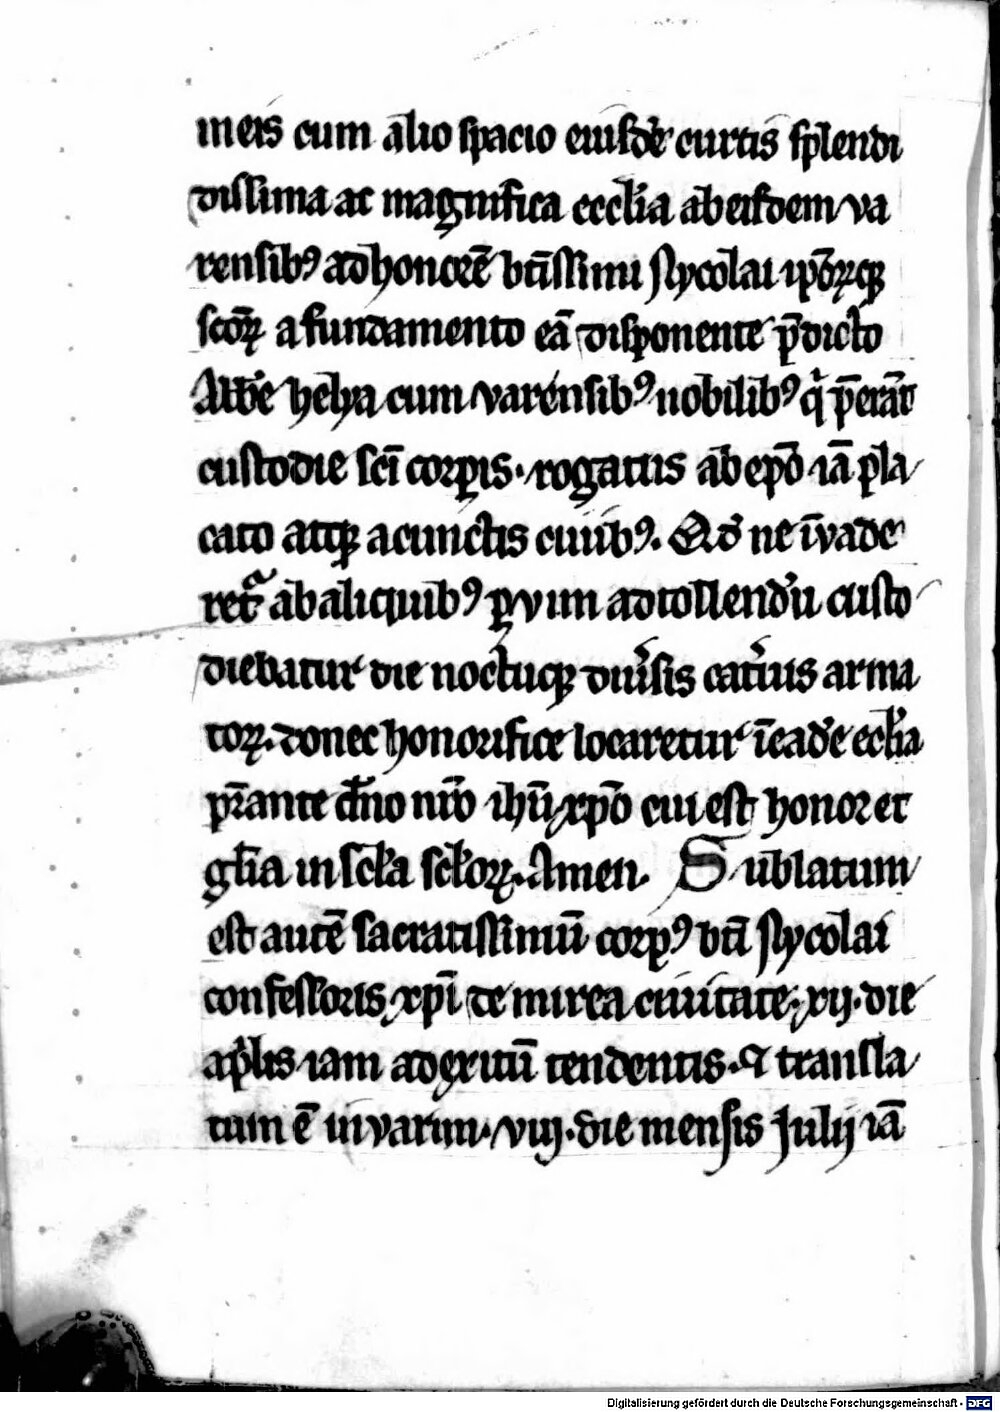 in eis cum alio spacio eiusdē curtis splendi
dissima ac magnifica ecclīa ab eisdem va
rensibꝯ ad honorē btīssimi Nycolai ipōꝝqꝫ
scōꝝ a fundamento eā disponente p̄dicto
Abbē helya cum varensibꝯ nobilibꝯ q̇ p̄erāt
custodie scī corꝑis. rogatus ab epō iā pla
cato atqꝫ a cunctis ciuibꝯ. Qd̓ ne īvade
ret᷑ ab aliquibꝯ ꝑ vim ad tollend̓u custo
diebatur die noctuqꝫ diu̓sis cat̓uis arma
toꝝ. donec honorifice locaretur ī ead̓e ecl̓ia
p̄stante dn̄o nr̄o ihū xp̄o cui est honor et
gl̄ia in scl̄a scl̄oꝝ. Amen. Sublatum
est autē sacratissimū corpꝯ btī Nycolai
confessoris xp̄i de mirea ciuitate; xij. die
ap̓lis iam ad exitū tendentis. ⁊ transla
tum ē in varim. viij. die mensis Julij iā
Digitalisierung gefördert durch die Deutsche Forschungsgemeinschaft - DFG